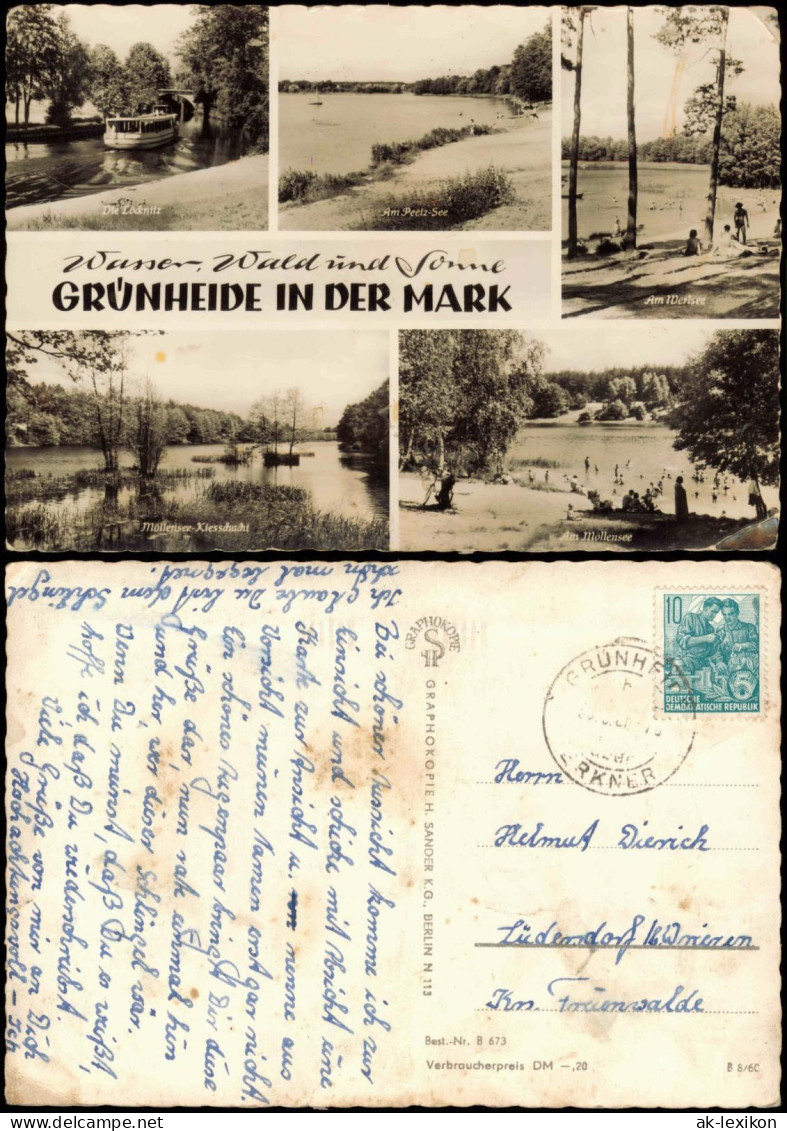 Die Löcknitz
Am Peetz-See
Am Werlsee
Wasser, Wald und Sonne
GRÜNHEIDE IN DER MARK
Möllensee-Kiesschacht
Am Möllensee
Ich glaube Du bist dem Schlingel
schon mal begegnet.
Bei schöner Aussicht komme ich zur
Einsicht und schicke mit Absicht eine
Karte zur Ansicht u. nenne aus
Vorsicht meinen Namen erst gar nicht.
Ein schönes Augenpaar bringt Dir diese
Grüße dar nun rate einmal hin
und her, wer dieser Schlingel war.
Wenn Du meinst, daß Du es weißt,
hoffe ich daß Du wiederschreibst.
Viele Grüße von mir an Dich
Hochachtungsvoll – Ich
GRAPHOKOPIE
GRAPHOKOPIE H. SANDER K.G., BERLIN N 113
10
DEUTSCHE
DEMOKRATISCHE REPUBLIK
GRÜNHEI
ERKNER
Herrn
Helmut Dierich
Lüdersdorf / b. Wriezen
Krs. Freienwalde
Best.-Nr. B 673
Verbraucherpreis DM —,20
B 8/60
ak-lexikon.com